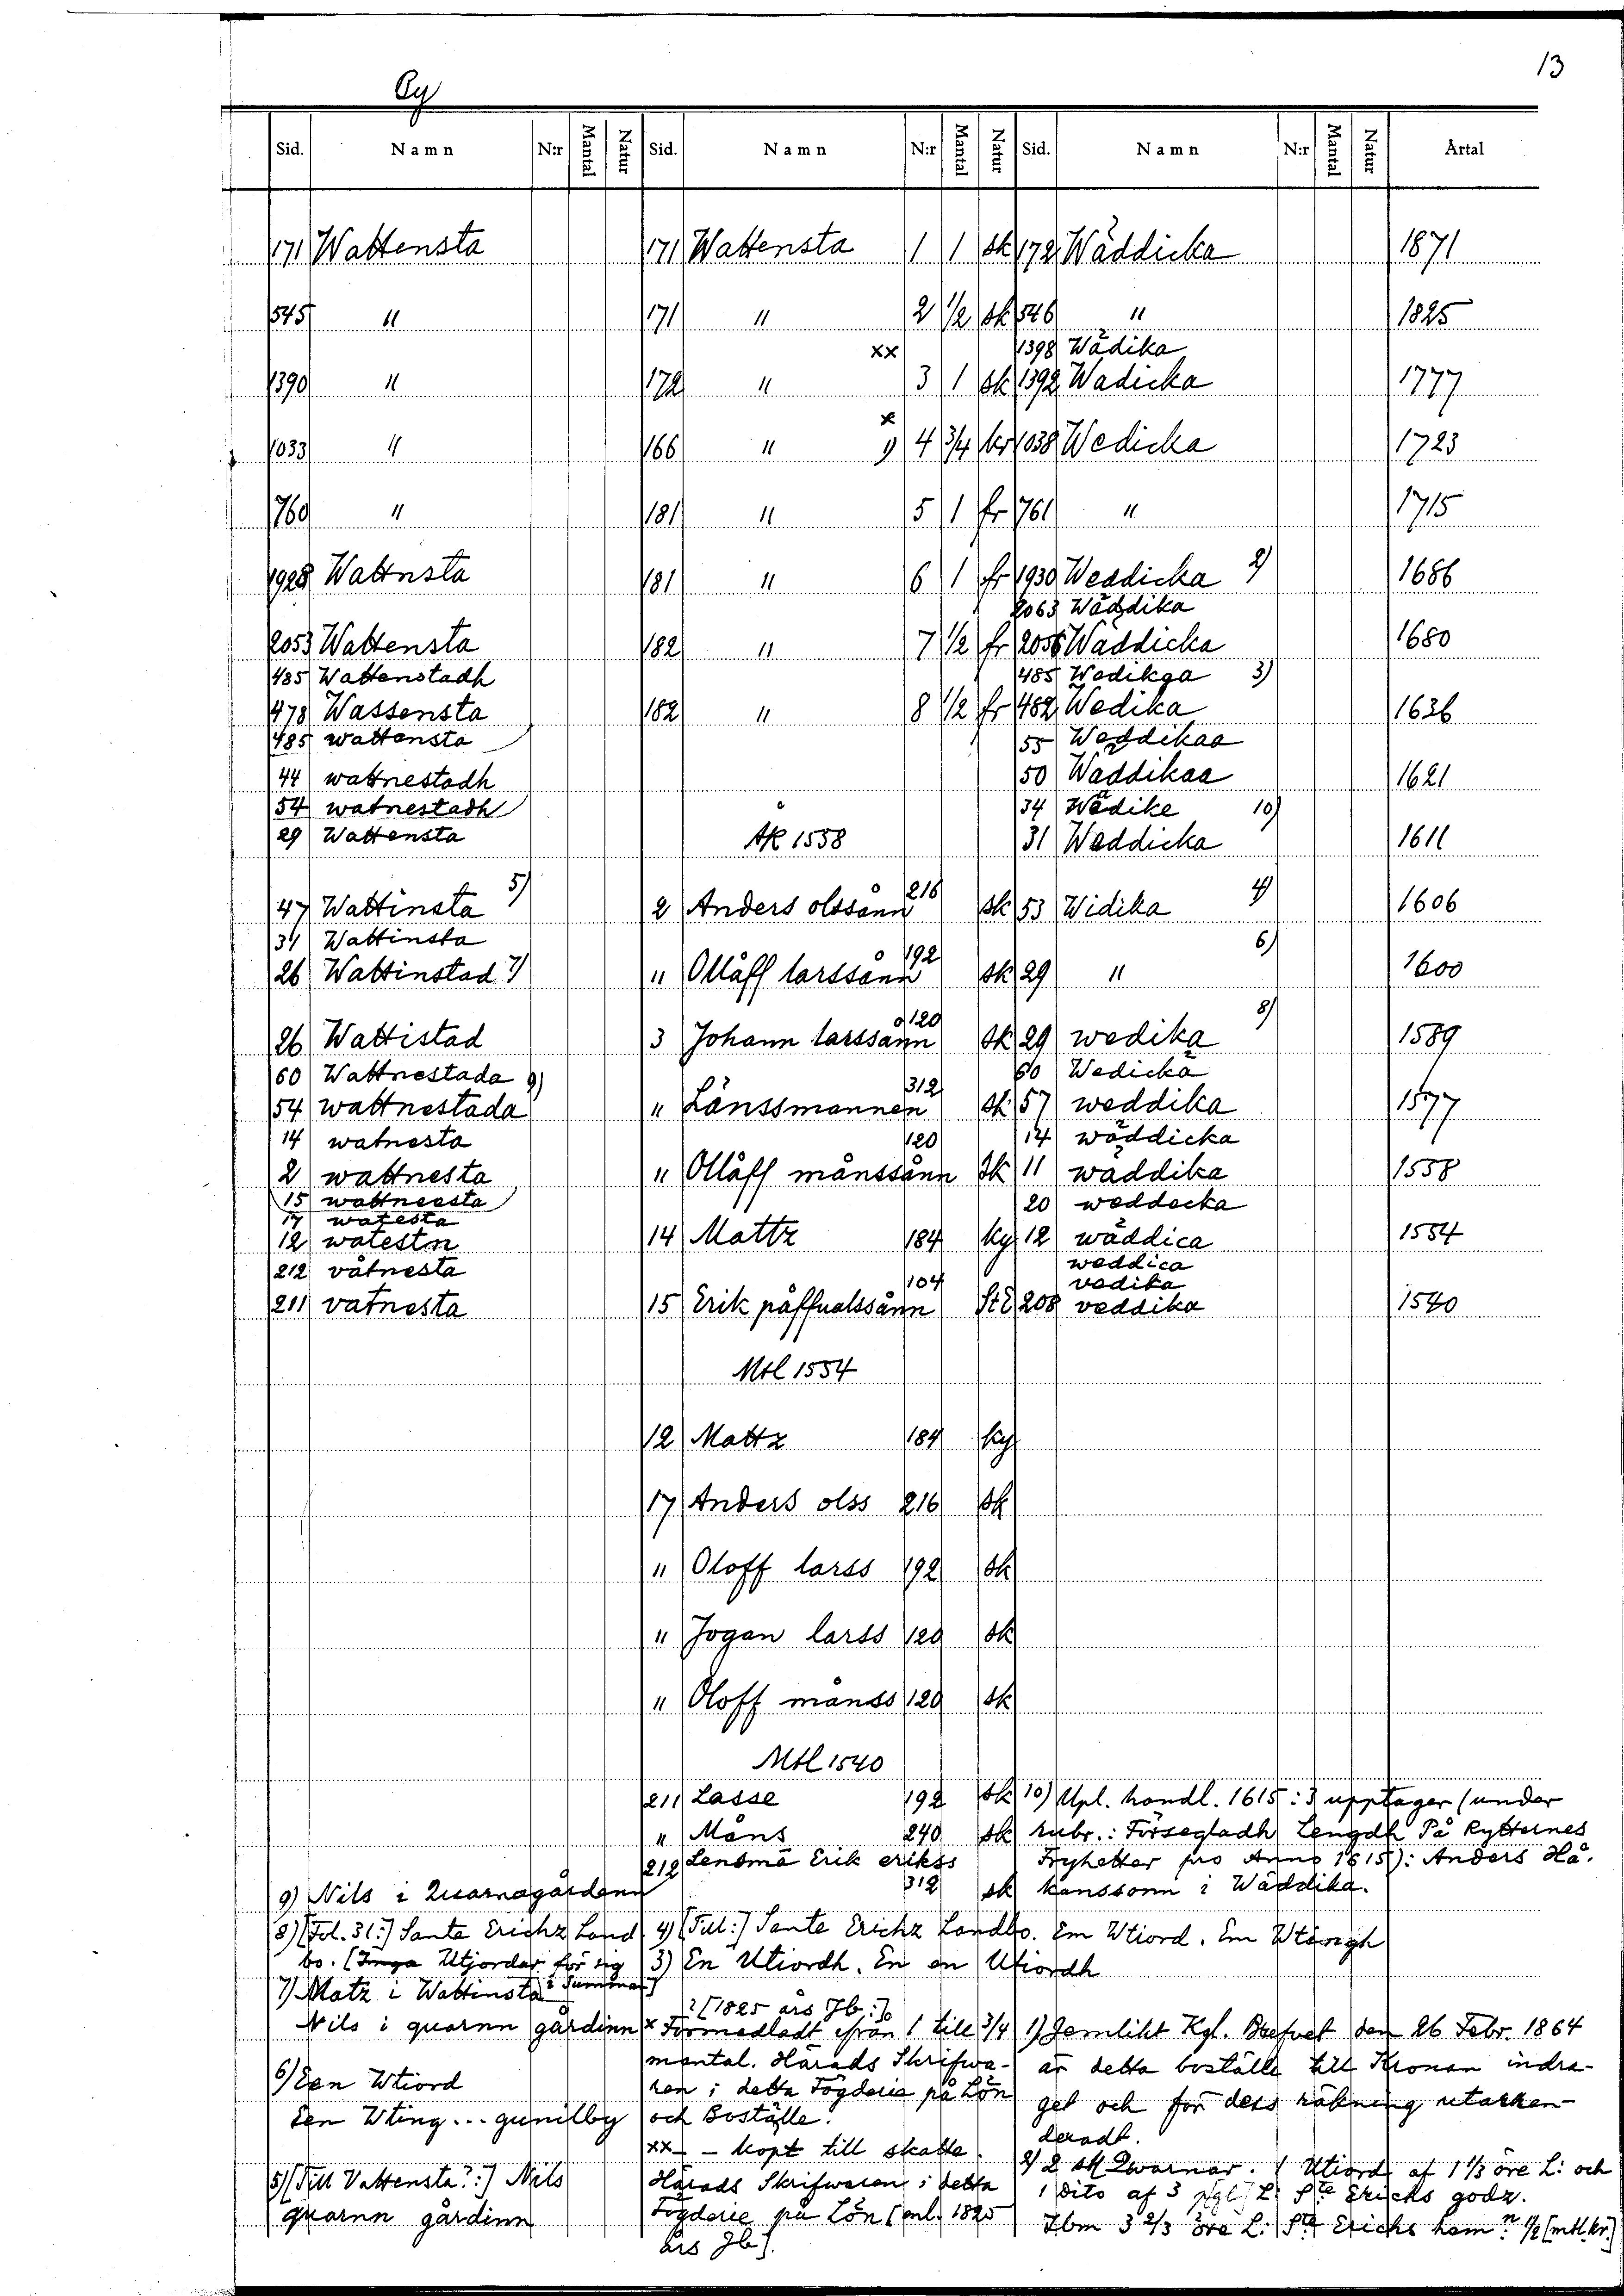 13
By
Sid. Namn N:r Mantal Natur Sid. Namn N:r Mantal Natur Sid. Namn N:r Mantal Natur Årtal
171 Wattensta 171 Wattensta 1 1 sk 172 Wäddicka 1871
545 " 171 " 2 1/2 sk 546 " 1825
xx 1398 Wädika
1390 " 172 " 3 1 sk 1392 Wadicka 1777
x
1033 " 166 " 1) 4 3/4 kr 1038 Wedicka 1723
760 " 181 " 5 1 fr 761 " 1715
1928 Wattnsta 181 " 6 1 fr 1930 Weddicka 2) 1686
2063 Wäddika
2053 Wattensta 182 " 7 1/2 fr 2056 Wäddicka 1680
485 Wattenstadh 485 Wedikga 3)
478 Wassensta 182 " 8 1/2 fr 482 Wedika 1636
485 wattensta 55 Weddikaa
44 wattnestadh 50 Waddikaa 1621
54 watnestadh 34 Wädike 10)
29 Wattensta ÅK 1558 31 Weddicka 1611
47 Wattinsta 5) 2 Anders olssånn 216 sk 53 Widika 4) 1606
31 Wattinsta 6)
26 Wattinstad 7) " Ollåff larssånn 192 sk 29 " 1600
8)
26 Wattistad 3 Johann larssånn 120 sk 29 wedika 1589
60 Wattnestada 9) 60 Wedicka
54 wattnestada " Länssmannen 312 sk 57 weddika 1577
14 watnesta 120 14 wäddicka
2 wattnesta " Ollåff månssånn sk 11 wäddika 1558
15 wattneesta 20 weddecka
17 watesta
12 watestn 14 Mattz 184 ky 12 wäddica 1554
212 våtnesta weddica
104 vedika
211 vatnesta 15 Erik påffualssånn StE 208 veddika 1540
Mtl 1554
12 Mattz 184 ky
17 Anders olss 216 sk
" Oloff larss 192 sk
" Jogan larss 120 sk
" Oloff månss 120 sk
Mtl 1540
211 Lasse 192 sk
" Måns 240 sk
212 Lensmä Erik erikss 312 sk
10) Upl. handl. 1615: 3 upptager (under
rubr.: Försegladh Lengdh På Rytternes
Fryhetter pro Anno 1615): Anders Hå-
kanssonn i Wäddika.
9) Nils i Quarnagårdenn
8) [Fol. 31:] Sante Erichz Land
bo. [Inga Utjordar för sig
i Summan]
7) Matz i Wattinsta
Nils i quarnn gårdinn
6) Een Wtiord
Een Wting... gunilby
5) [Till Vattensta?:] Nils
quarnn gårdinn
4) [Till:] Sante Erichz Landbo. Em Wtiord. Em
3) En Utiordh. En en Utiordh
[1825 års Jb:]
x Förmedladt ifrån 1 till 3/4
mental. Härads Skrifwa-
ren i detta Fögderie på Lön
och Boställe.
xx - köpt till skatte.
Härads Skrifwaren i detta
Fögderie på Lön [enl. 1825
års Jb].
1) Jemlikt Kgl. Brefvet den 26 Febr. 1864
är detta boställe till Kronan indra-
get och för dess räkning utarren-
deradt.
2) 2 st Qwarnar. 1 Utiord af 1 1/3 öre L: och
1 dito af 3 L: Ste Erichs godz.
Ibm 3 2/3 öre L: Ste Erichs hem:n 1/2 [mtl. kr.]